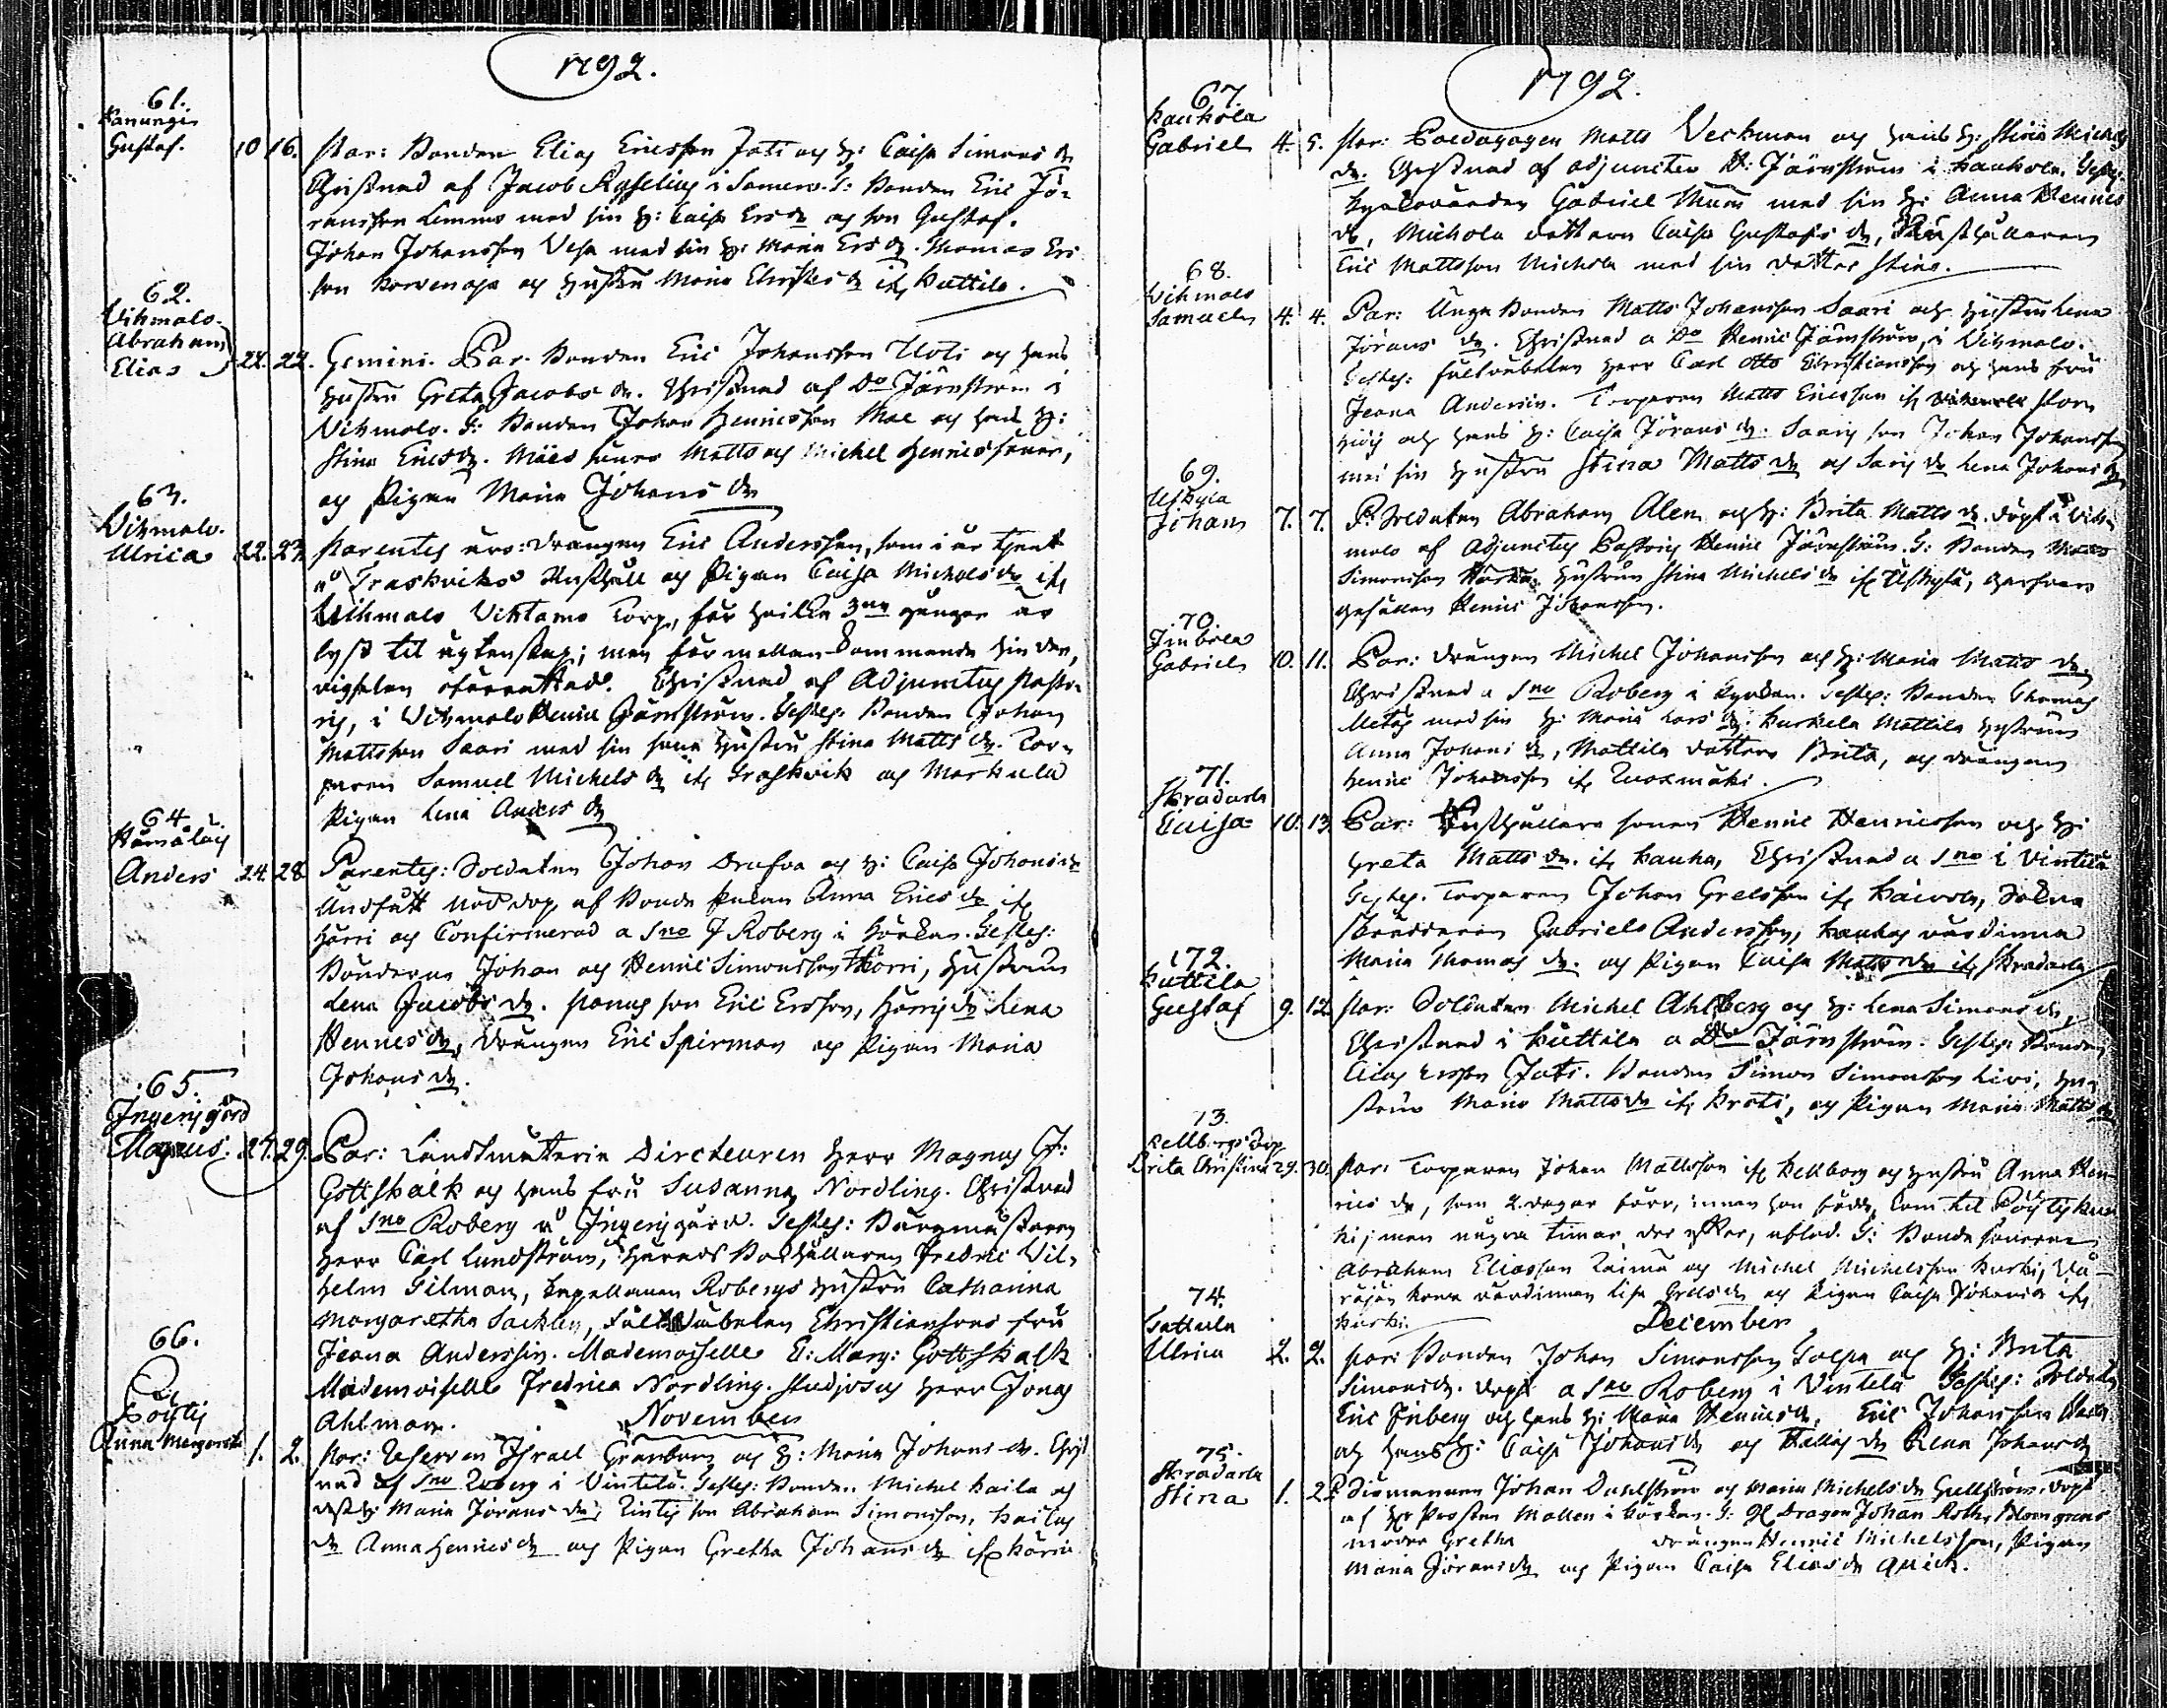 1792.
61.
Kanungis
Gustaf. 10 16. Par: Bonden Elias Ericsson Jati och H: Caisa Simons dr
Christnad af Jacob Rosselius i Somero. T: Bonden Eric Jö-
ransson Lemmo med sin H: Caisa Ersdr och son Gustaf.
Johan Johansson Vesa med sin H: Maria Ersdr. Thomas Eric
son Korvenoja och Hustru Maria Christersdr ifr Kuttila.
62.
Vihmalo.
Abraham
Elias 22. 22. Gemini. Par. Bonden Eric Johansson Uoti och hans
Hustru Greta Jacobs dr. Christnad af Do Järnström i
Vihmalo. T: Bonden Johan Henricsson Mäe och hans H:
Stina Ericsdr. Mäes söner Matts och Michel Henricssöner,
och Pigan Maria Johans dr
63.
Vihmalo.
Ulrica 22. 23. Parentes äro: Drängen Eric Andersson, som i år tjent
å Traskviks Rusthåll och Pigan Caisa Michelsdr ifr
Vihmalo Vihtamo Torp, för hvilka 3ne gånger är
lyst til ägtenskap; men för mellankommande hinder,
vigselen oförrättad. Christnad af Adjunctus Pasto-
ris, i Vihmalo Henric Järnström. Testes: Bonden Johan
Mattsson Saari med sin sons Hustru Stina Matts dr. Tor-
paren Samuel Michels dr ifr Traskvik och Markula
Pigan Lena Anders dr
64.
Hämäläis
Anders 24. 28 Parentes: Soldaten Johan Drufva och H: Caisa Johansdr
Undfått nöddop af Bonde Enkan Anna Ericsdr ifr
Härri och Confirmerad a Sno J Roberg i Kyrkan. Testes:
Bönderne Johan och Henric Simonsson Härri, Hustrun
Lena Jacobs dr. Panus son Eric Ersson, Härris dr Lena
Henricsdr, Drängen Eric Spirman och Pigan Maria
Johans dr.
65.
Ingenjgård
Magnus. 27. 29. Par: Landtmäteri Directeuren Herr Magnus J:
Gottskalk och hans fru Susanna Nordling. Christnad
af Sno Roberg å Ingenjgård. Testes: Borgmästaren
Herr Carl Lundström, Härads Bokhållaren Fredric Vil-
helm Gilman, Capellanen Robergs Hustru Catharina
Margaretha Sacklen, Fältväbelen Christiansons fru
Jeana Anderssin. Mademoiselle E: Marg: Gottskalk
Mademoiselle Fredrica Nordling. Studiosus Herr Jonas
Ahlman.
November
66.
Pöytis
Anna Margareta 1. 2. Par: Reserven Israel Granberg och H: Maria Johans dr. Christ
nad af Sno Roberg i Vintelä. Testes: Bonden Michel Kaila och
dess H: Maria Jörans dr, Eintis son Abraham Simonsson, Kailas
dr Anna Henricsdr och Pigan Gretha Johans dr ifr Härri.
1792.
67.
Kauhola
Gabriel 4. 5. Par: Paedagogen Matts Veckman och hans H: Stina Michels
dr. Christnad af Adjuncten H: Järnström i Kauhola. Testes:
Kyrkovärden Gabriel Mum med sin H: Anna Henrics
dr, Michola dottern Caisa Gustafs dr, Rusthållaren
Eric Mattsson Michola med sin dotter Stina.
68.
Vihmalo
Samuel 4. 4. Par: Unga Bonden Matts Johansson Saari och Hustru Lena
Jörans dr. Christnad a Do Henric Järnström, i Vihmalo.
Testes: Fältväbelen Herr Carl Otto Christiansson och hans fru
Jeana Anderssin. Torparen Matts Ericsson ifr Stor
och hans H: Caisa Jörans dr. Saaris son Johan Johansson
med sin Hustru Stina Matts dr och Saris dr Lena Johans dr
69.
Uskyla
Johan 7. 7. P: Soldaten Abraham Alen och H: Brita Matts dr. Döpt i Vih-
malo af Adjunctus Pastoris Henric Järnström. T: Bonden Matts
Simonsson Hustrun Stina Michels dr ifr Uskylä,
gesällen Henric Johansson.
70.
Juvola
Gabriel 10. 11. Par: Drängen Michel Johansson och H: Maria Matts dr.
Christnad a Sno Roberg i Kyrkan. Testes: Bonden Thomas
med sin H: Maria Lars dr. Kurkela Mattila Hustrun
Anna Johans dr, Mattila dottern Brita, och Drängen
Henric Johansson ifr Ruosmäki.
71.
Skradarla
Caisa 10. 13. Par: Rusthållare sonen Henric Henricsson och H:
Greta Matts dr. ifr Kauha, Christnad a Sno i Vintelä
Testes. Torparen Johan Grelsson ifr Kaivola, Sokne
skräddaren Gabriel Andersson, Kauhas värdinna
Maria Thomas dr. och Pigan Caisa Matts dr ifr Skradarla
72.
Kuttila
Gustaf 9. 12. Par: Soldaten Michel Ahlberg och H: Lena Simons dr,
Christnad i Kuttila a Do Järnström. Testes: Bonden
Elias Ersson Jati. Bonden Simon Simonsson Livi, Hu-
strun Maria Mattsdr ifr Proti, och Pigan Maria Matts dr
73.
Kellbergs Torp
Brita Christina 29. 30. Par: Torparen Johan Mattsson ifr Kellborg och Hustru Anna Hen-
rics dr, som 2. dagar förr, innan hon födde, kom til Pöytis Kur
ki; men några timar, der efter, afled. T: Bonde sönerne
Abraham Eliasson Raima och Michel Michelsson Kurki,
värdinnan Lisa Grelsdr och Pigan Caisa Johans dr ifr
Kurki.
December
74.
Tattula
Ulrica 2. 2. Par: Bonden Johan Simonsson Tolpa och H: Brita
Simonsdr. Döpt a Sno Roberg i Vintelä Testes: Soldaten
Eric Friberg och hans H: Maria Henricsdr, Eric Johansson
och hans H: Caisa Johans dr och Kallas dr Lena Johansdr
75.
Skradarla
Stina 1. 2. P: Johan Dahlström och Maria Michels dr Gullström. Döpt
af Hr Prosten Mallen i Kyrkan. T: Gl. Dragon Johan Roth, Blomgrens
moder Gretha Drängen Henric Michelsson, Pigan
Maria Jörans dr och Pigan Caisa Elias dr Quick.